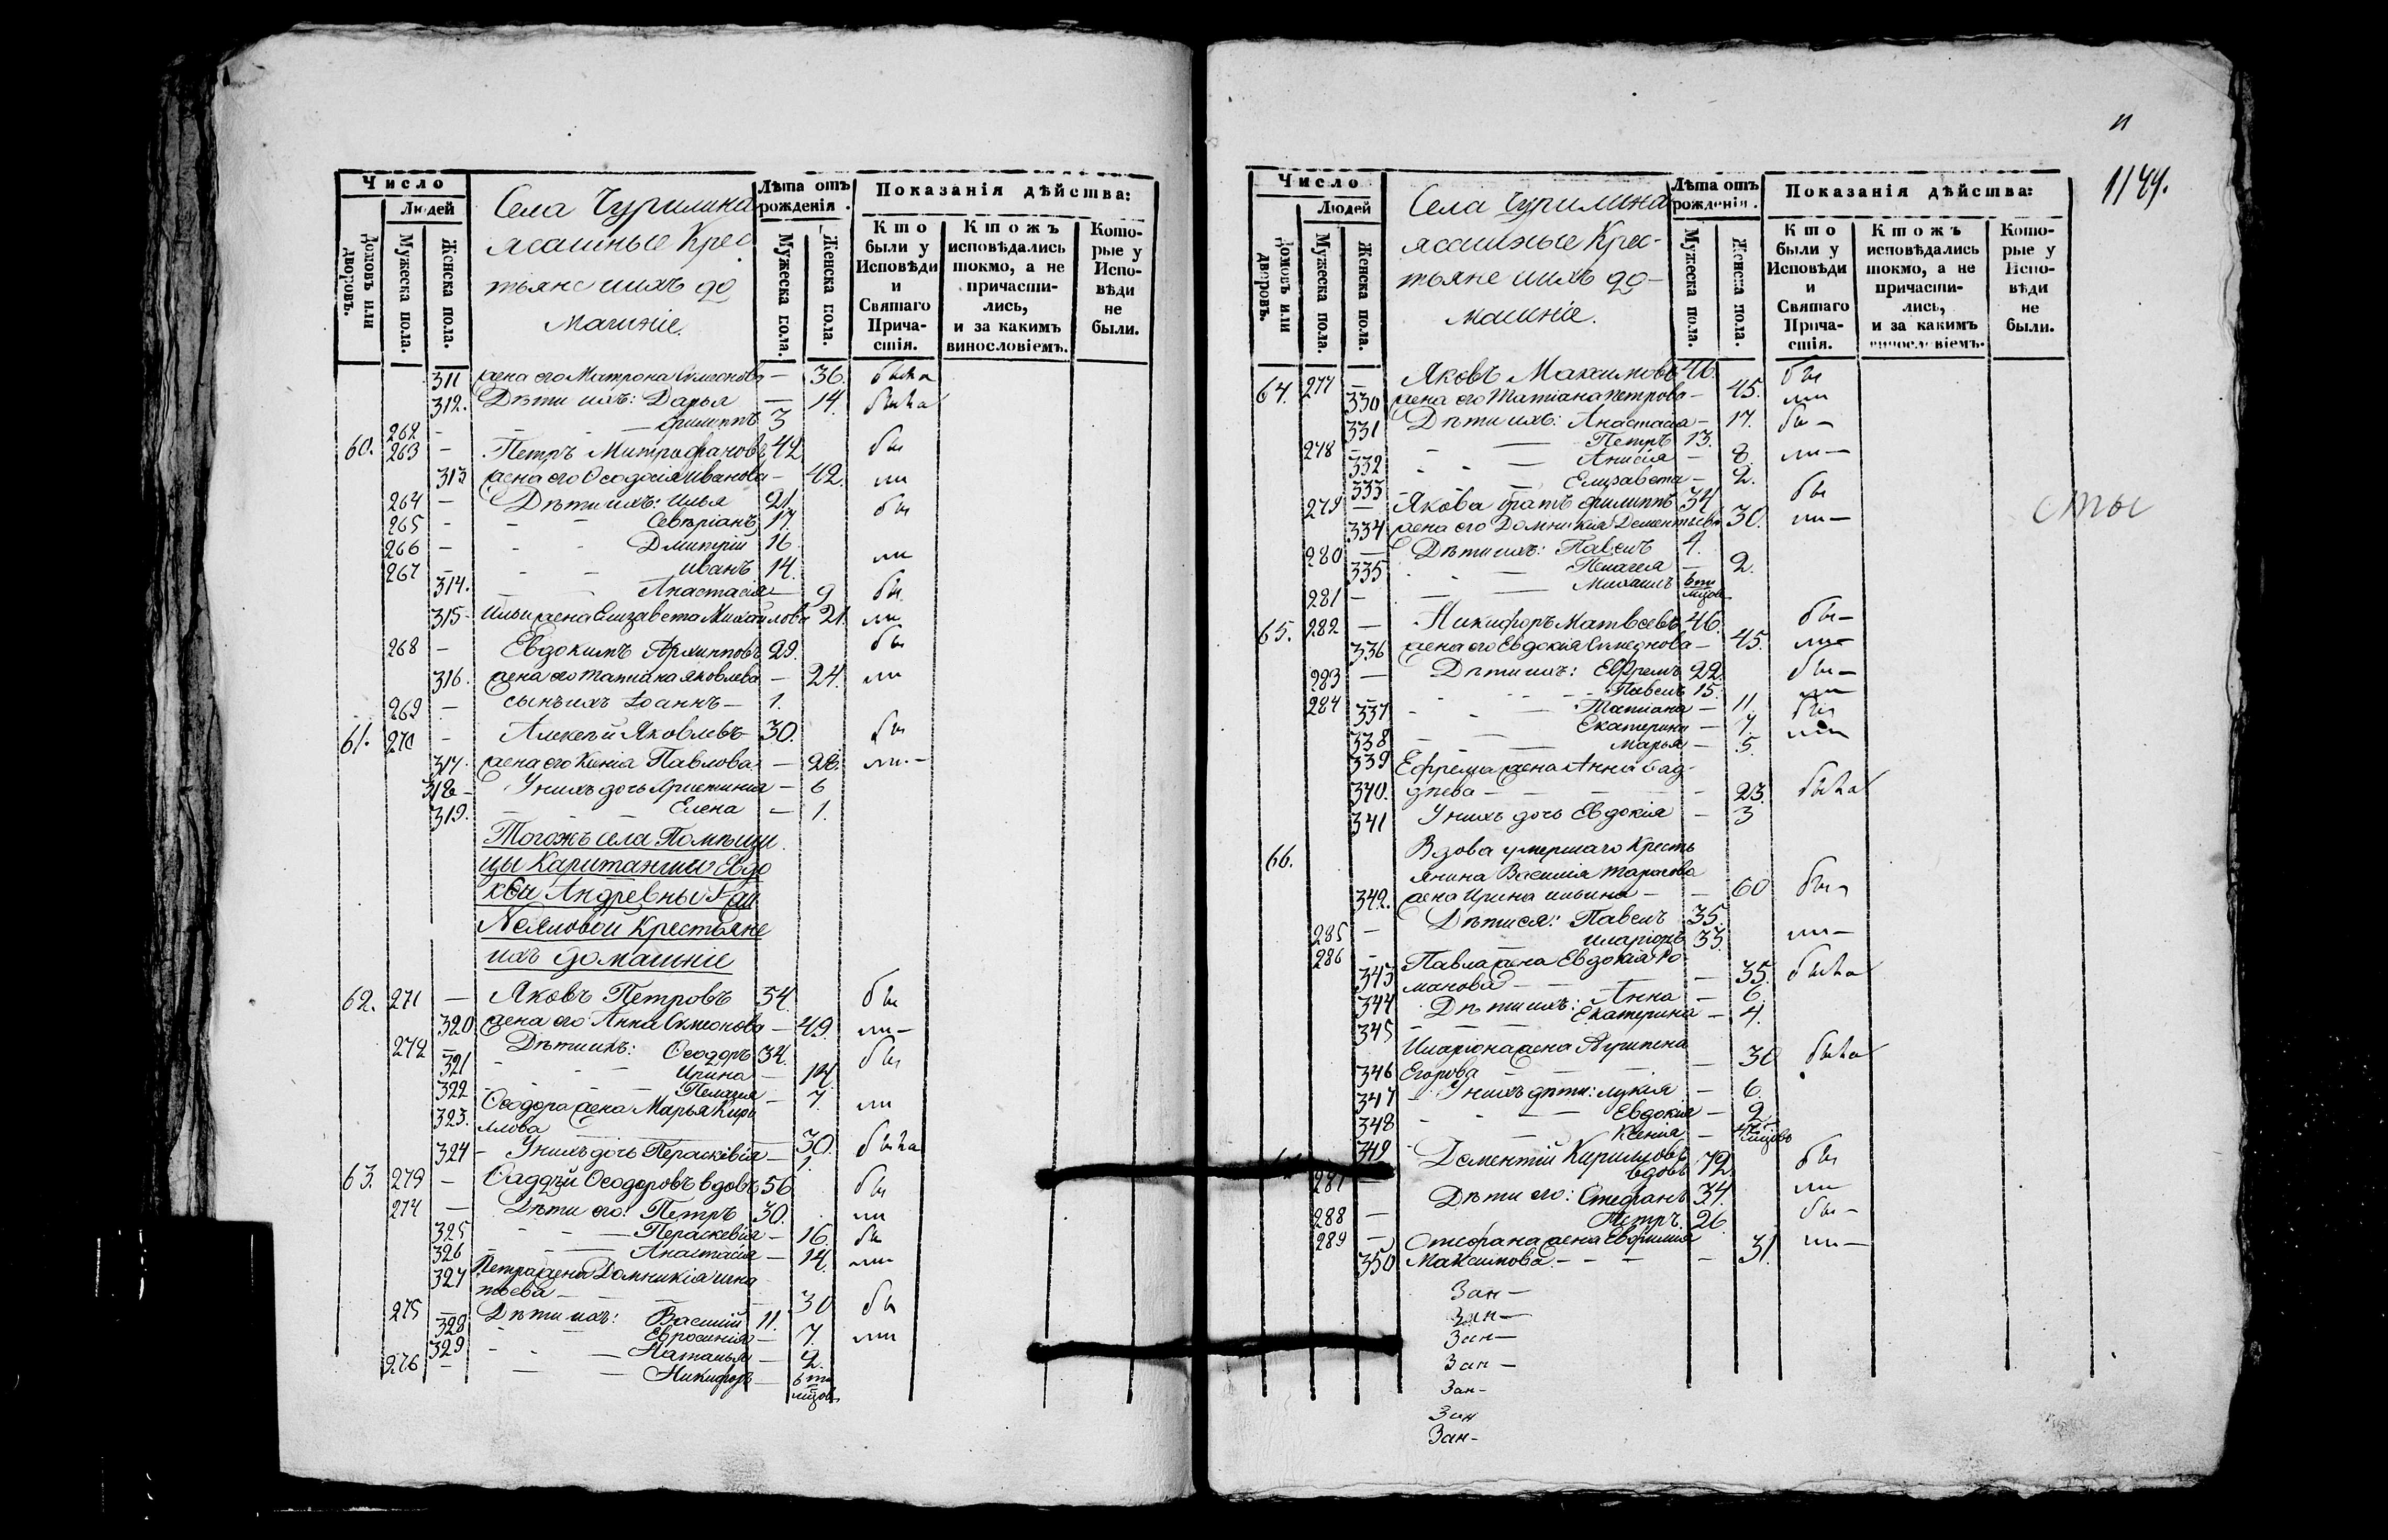 Число
Людей
Домовъ или дворовъ.
Мужеска пола.
Женска пола.
Села Чурилина
ясашные Крес
тьяне и ихъ до
машніе.
Лѣта отъ рожденія.
Мужеска пола.
Женска пола.
Показанія дѣйства:
Кто были у Исповѣди и Святаго Причастія.
Ктожъ исповѣдались токмо, а не причастились, и за какимъ винословіемъ.
Которые у Исповѣди не были.
311 жена его Матрона Симеонова — 36. была
312. Дѣти ихъ: Дарья — 14. была
262 — Филиппъ 3
60. 263 — Петръ Митрофановъ 42 бы
313 жена его Ѳеодосія Иванова — 42. ли
264 — Дѣти ихъ: Илья 21. бы
265 - Севѣріанъ 17.
266 — Дмитрій 16 ли
267 — Иванъ 14.
314. Анастасія — 9 бы
315 - Ильи жена Елизавета Михайлова 21. ли
268 — Евдокимъ Архипповъ 29. бы
316. жена его Татіана Яковлева — 24. ли
269 — сынъ ихъ Іоаннъ — 1.
61. 270 - Алексѣй Яковлевъ 30. бы
317. жена его Ксенія Павлова — 28. ли -
318 - У нихъ дочь Христинія — 6
319. Елена — 1.
Тогожъ села Помѣщи
цы Капитанши Евдо
кѣи Андревны
Крестьяне
ихъ домашніе
62. 271 — Яковъ Петровъ 54. бы
320 жена его Анна Симеонова — 49. ли —
272 — Дѣти ихъ: Ѳеодоръ 34. бы
321 Ирина — 14.
322 Пелагея — 7. ли
323. Ѳеодора жена Марья Кири
лова — 30. была
324 - У нихъ дочь Пераскевія — 1.
63. 273 — Ѳаддѣй Ѳеодоровъ вдовъ 56 бы
274 — Дѣти его: Петръ 30. ли
325 — Пераскевія — 16. бы
326 — Анастасія — 14. ли
327 Петра жена Домникія Игна
тьева — 30 бы
275 — Дѣти ихъ: Василій 11.
328 Евросинія — 7. ли
329 — Наталья — 2.
276 — Никифоръ — 6 ти
мцовъ
11
1144.
Число
Людей
Домовъ или дворовъ.
Мужеска пола.
Женска пола.
Села Чурилина
ясашные Крес-
тьяне и ихъ до-
машніе.
Лѣта отъ рожденія.
Мужеска пола.
Женска пола.
Показанія дѣйства:
Кто были у Исповѣди и Святаго Причастія.
Ктожъ исповѣдались токмо, а не причастились, и за какимъ винословіемъ.
Которые у Исповѣди не были.
64. 277 — Яковъ Максимовъ 46. бы
330 жена его Татіана Петрова — 45. ли
331 Дѣти ихъ: Анастасія — 17. бы —
278 — Петръ 13.
332 — Анисія — 8. ли —
333 — Елизавета — 2.
279 — Якова братъ Филиппъ 34 бы
334 жена его Домникія Дементьева 30. ли —
280 — Дѣти ихъ: Павелъ 4.
335 — Пелагея — 2.
281 — Михаилъ 6 ти
мцовъ
сты
65. 282 — Никифоръ Матвѣевъ 46. бы —
336 жена его Евдокія Симеонова — 45. ли —
283 — Дѣти ихъ: Ефремъ 22. бы —
284 — Павелъ 15. ли
337 - Татіана — 11. бы
338 — Екатерина — 7. ли
339 — Марья — 5.
Ефрема жена Анна Ѳад-
340. дѣева — 23. была
341 У нихъ дочь Евдокія — 3
66. Вдова умершаго Кресть
янина Василія Тарасова
342. жена Ирина Ильина — 60 бы
285 — Дѣти ея: Павелъ 35.
286 — Иларіонъ 33. ли —
Павла жена Евдокія Ро
343 манова — 35. была
344 Дѣти ихъ: Анна — 6.
345 Екатерина — 4.
Иларіона жена Агрипена
346 Егорова — 30 была
347 — У нихъ дѣти: Лукія — 6.
348 Евдокія — 2
349 Ксенія — мцовъ
287 — Дементій Кириловъ
вдовъ 72 бы
288 — Дѣти его: Стефанъ 34. ли
289 — Петръ. 26 бы —
Стефана жена Евфимія
350 Максимова — 31. ли —
Зан —
Зан —
Зан —
Зан —
Зан -
Зан
Зан -